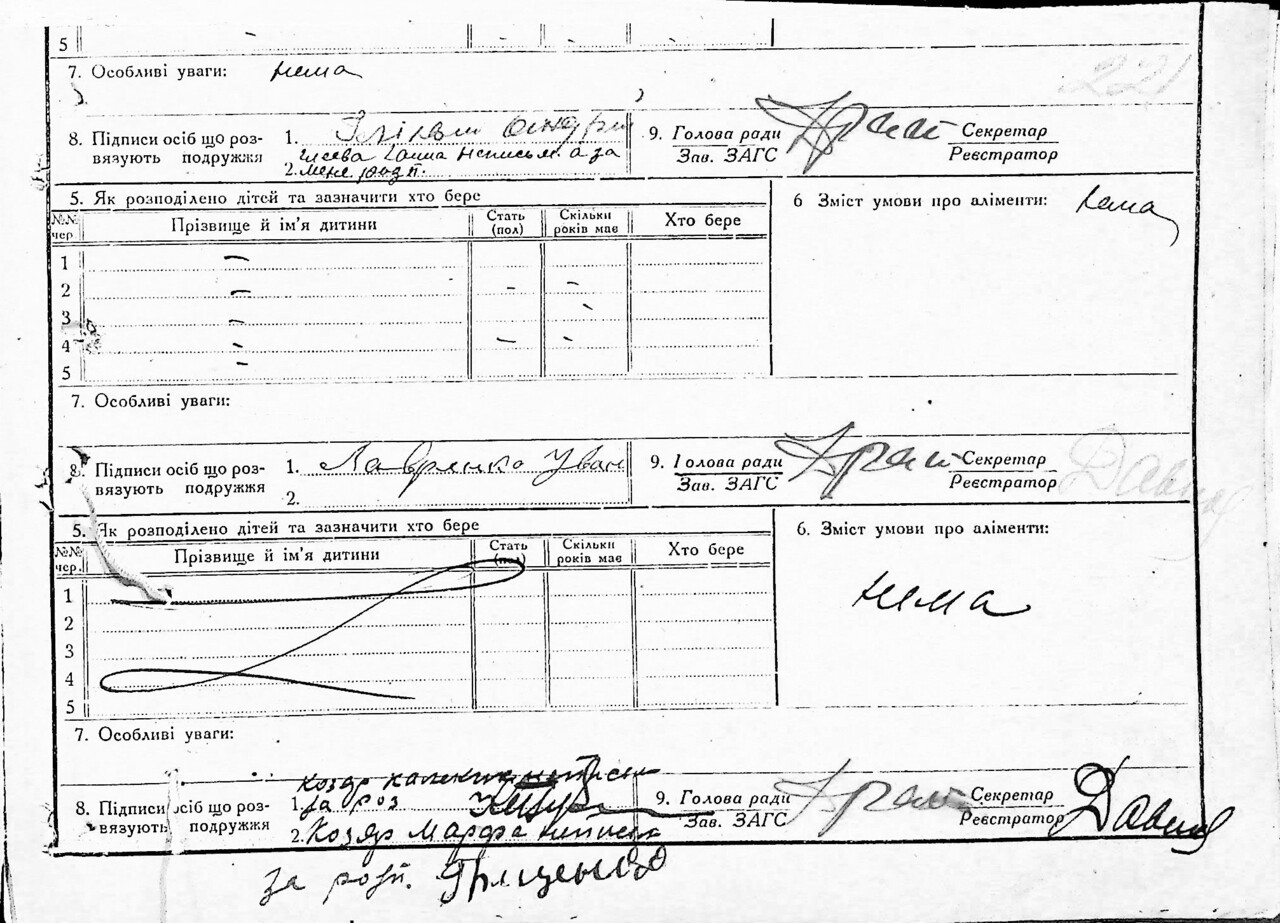 5 - - - -
7. Особливі уваги: нема
221
8. Підписи осіб що роз- 1.
вязують подружжя Ганна неписьм. а за
2. мене розп.
9. Голова ради Секретар
Зав. ЗАГС Реєстратор
5. Як розподілено дітей та зазначити хто бере
6 Зміст умови про аліменти: нема
№№ чер. Прізвище й ім'я дитини Стать (пол) Скільки років має Хто бере
1 -
2 - - -
3 - -
4 - - -
5 -
7. Особливі уваги:
8. Підписи осіб що роз- 1. Лавренко Уван
вязують подружжя 2.
9. Голова ради Секретар
Зав. ЗАГС Реєстратор
5. Як розподілено дітей та зазначити хто бере
6. Зміст умови про аліменти:
№№ чер. Прізвище й ім'я дитини Стать (пол) Скільки років має Хто бере
нема
1
2
3
4
5
7. Особливі уваги:
Козяр
8. Підписи осіб що роз- 1. за роз
вязують подружжя 2. Козяр Марфа неписьм
9. Голова ради Секретар
Зав. ЗАГС Реєстратор
за розп. Гриценко